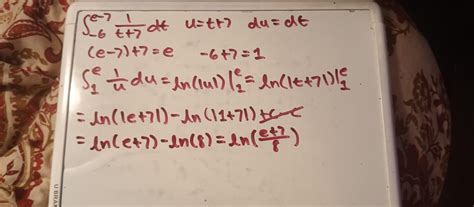 ∫_{-6}^{e-7} 1/(t+7) dt   u=t+7   du=dt
(e-7)+7=e   -6+7=1
∫_1^e 1/u du = ln(|u|)|_1^e = ln(|t+7|)|_1^e
= ln(|e+7|)-ln(|1+7|) +C
= ln(e+7)-ln(8) = ln((e+7)/8)